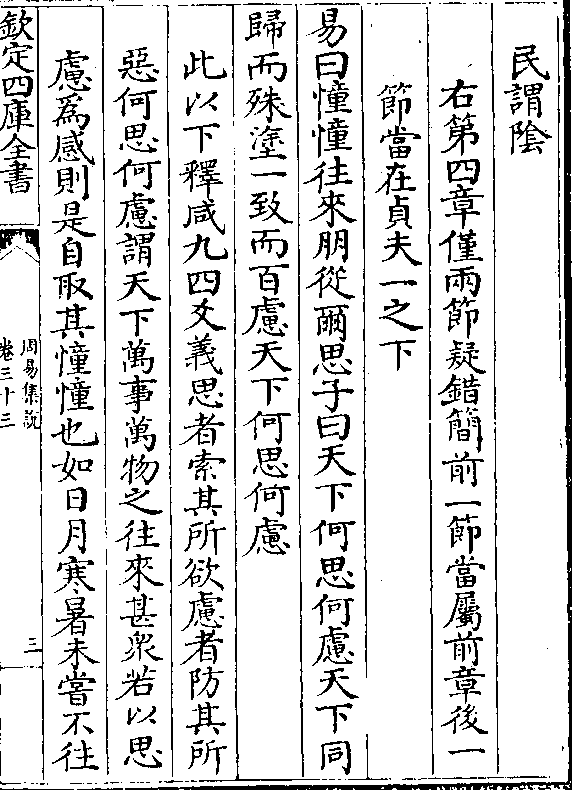 民謂陰
右第四章僅兩節疑錯簡前一節當屬前章後一
節當在貞夫一之下
易曰憧憧往來朋從爾思子曰天下何思何慮天下同
歸而殊塗一致而百慮天下何思何慮
此以下釋咸九四爻義思者索其所欲慮者防其所
惡何思何慮謂天下萬事萬物之往來甚衆若以思
慮為感則是自取其憧憧也如日月寒暑未嘗不往
欽定四庫全書
周易集說
卷三十三
三